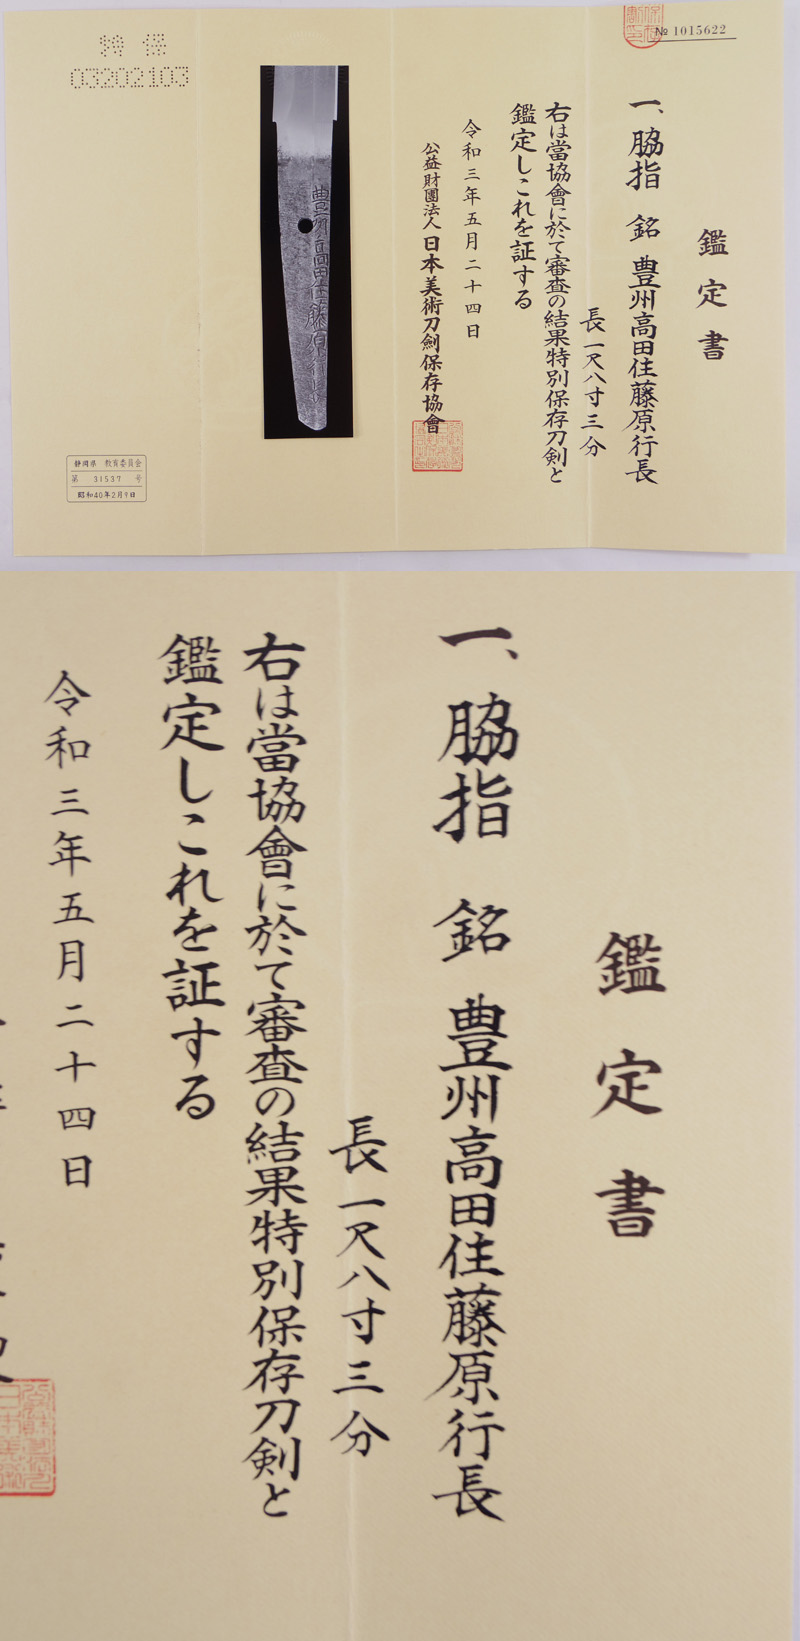 № 1015622
鑑定書
一、脇指 銘 豊州高田住藤原行長
長一尺八寸三分
右は當協會に於て審査の結果特別保存刀剣と
鑑定しこれを証する
令和三年五月二十四日
公益財團法人 日本美術刀劍保存協會
豊州高田住藤原行長
特 保
03202103
静岡県 教育委員会
第 31537 号
昭和40年2月9日
鑑定書
一、脇指 銘 豊州高田住藤原行長
長一尺八寸三分
右は當協會に於て審査の結果特別保存刀剣と
鑑定しこれを証する
令和三年五月二十四日